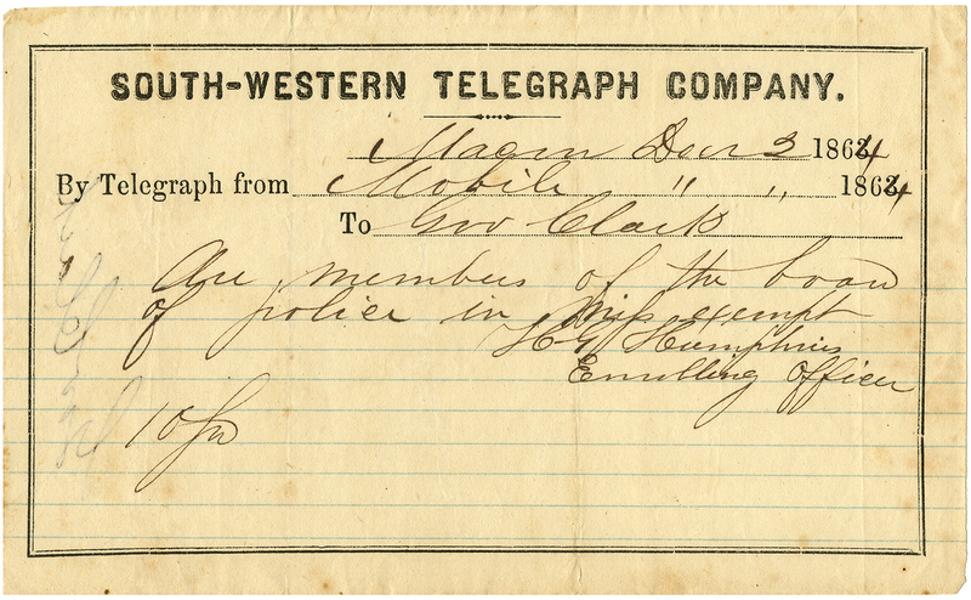 SOUTH-WESTERN TELEGRAPH COMPANY.
Macon Decr 2 1864
By Telegraph from Mobile " " 1864
To Gov Clark
Are members of the board
of police in Miss exempt
H G Humphries
Enrolling Officer
10